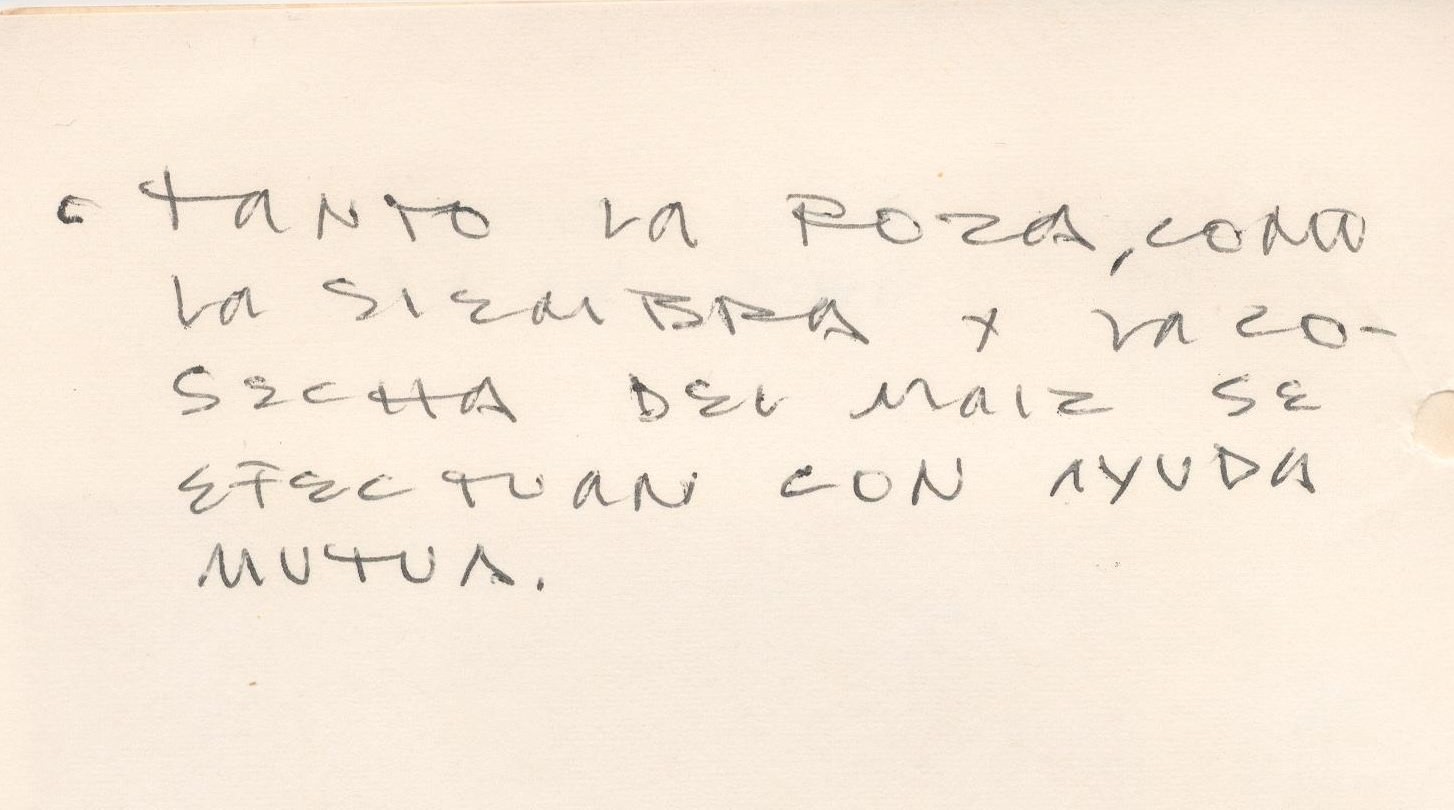 • TANTO LA ROZA, COMO
LA SIEMBRA Y LA CO-
SECHA DEL MAIZ SE
EFECTUAN CON AYUDA
MUTUA.